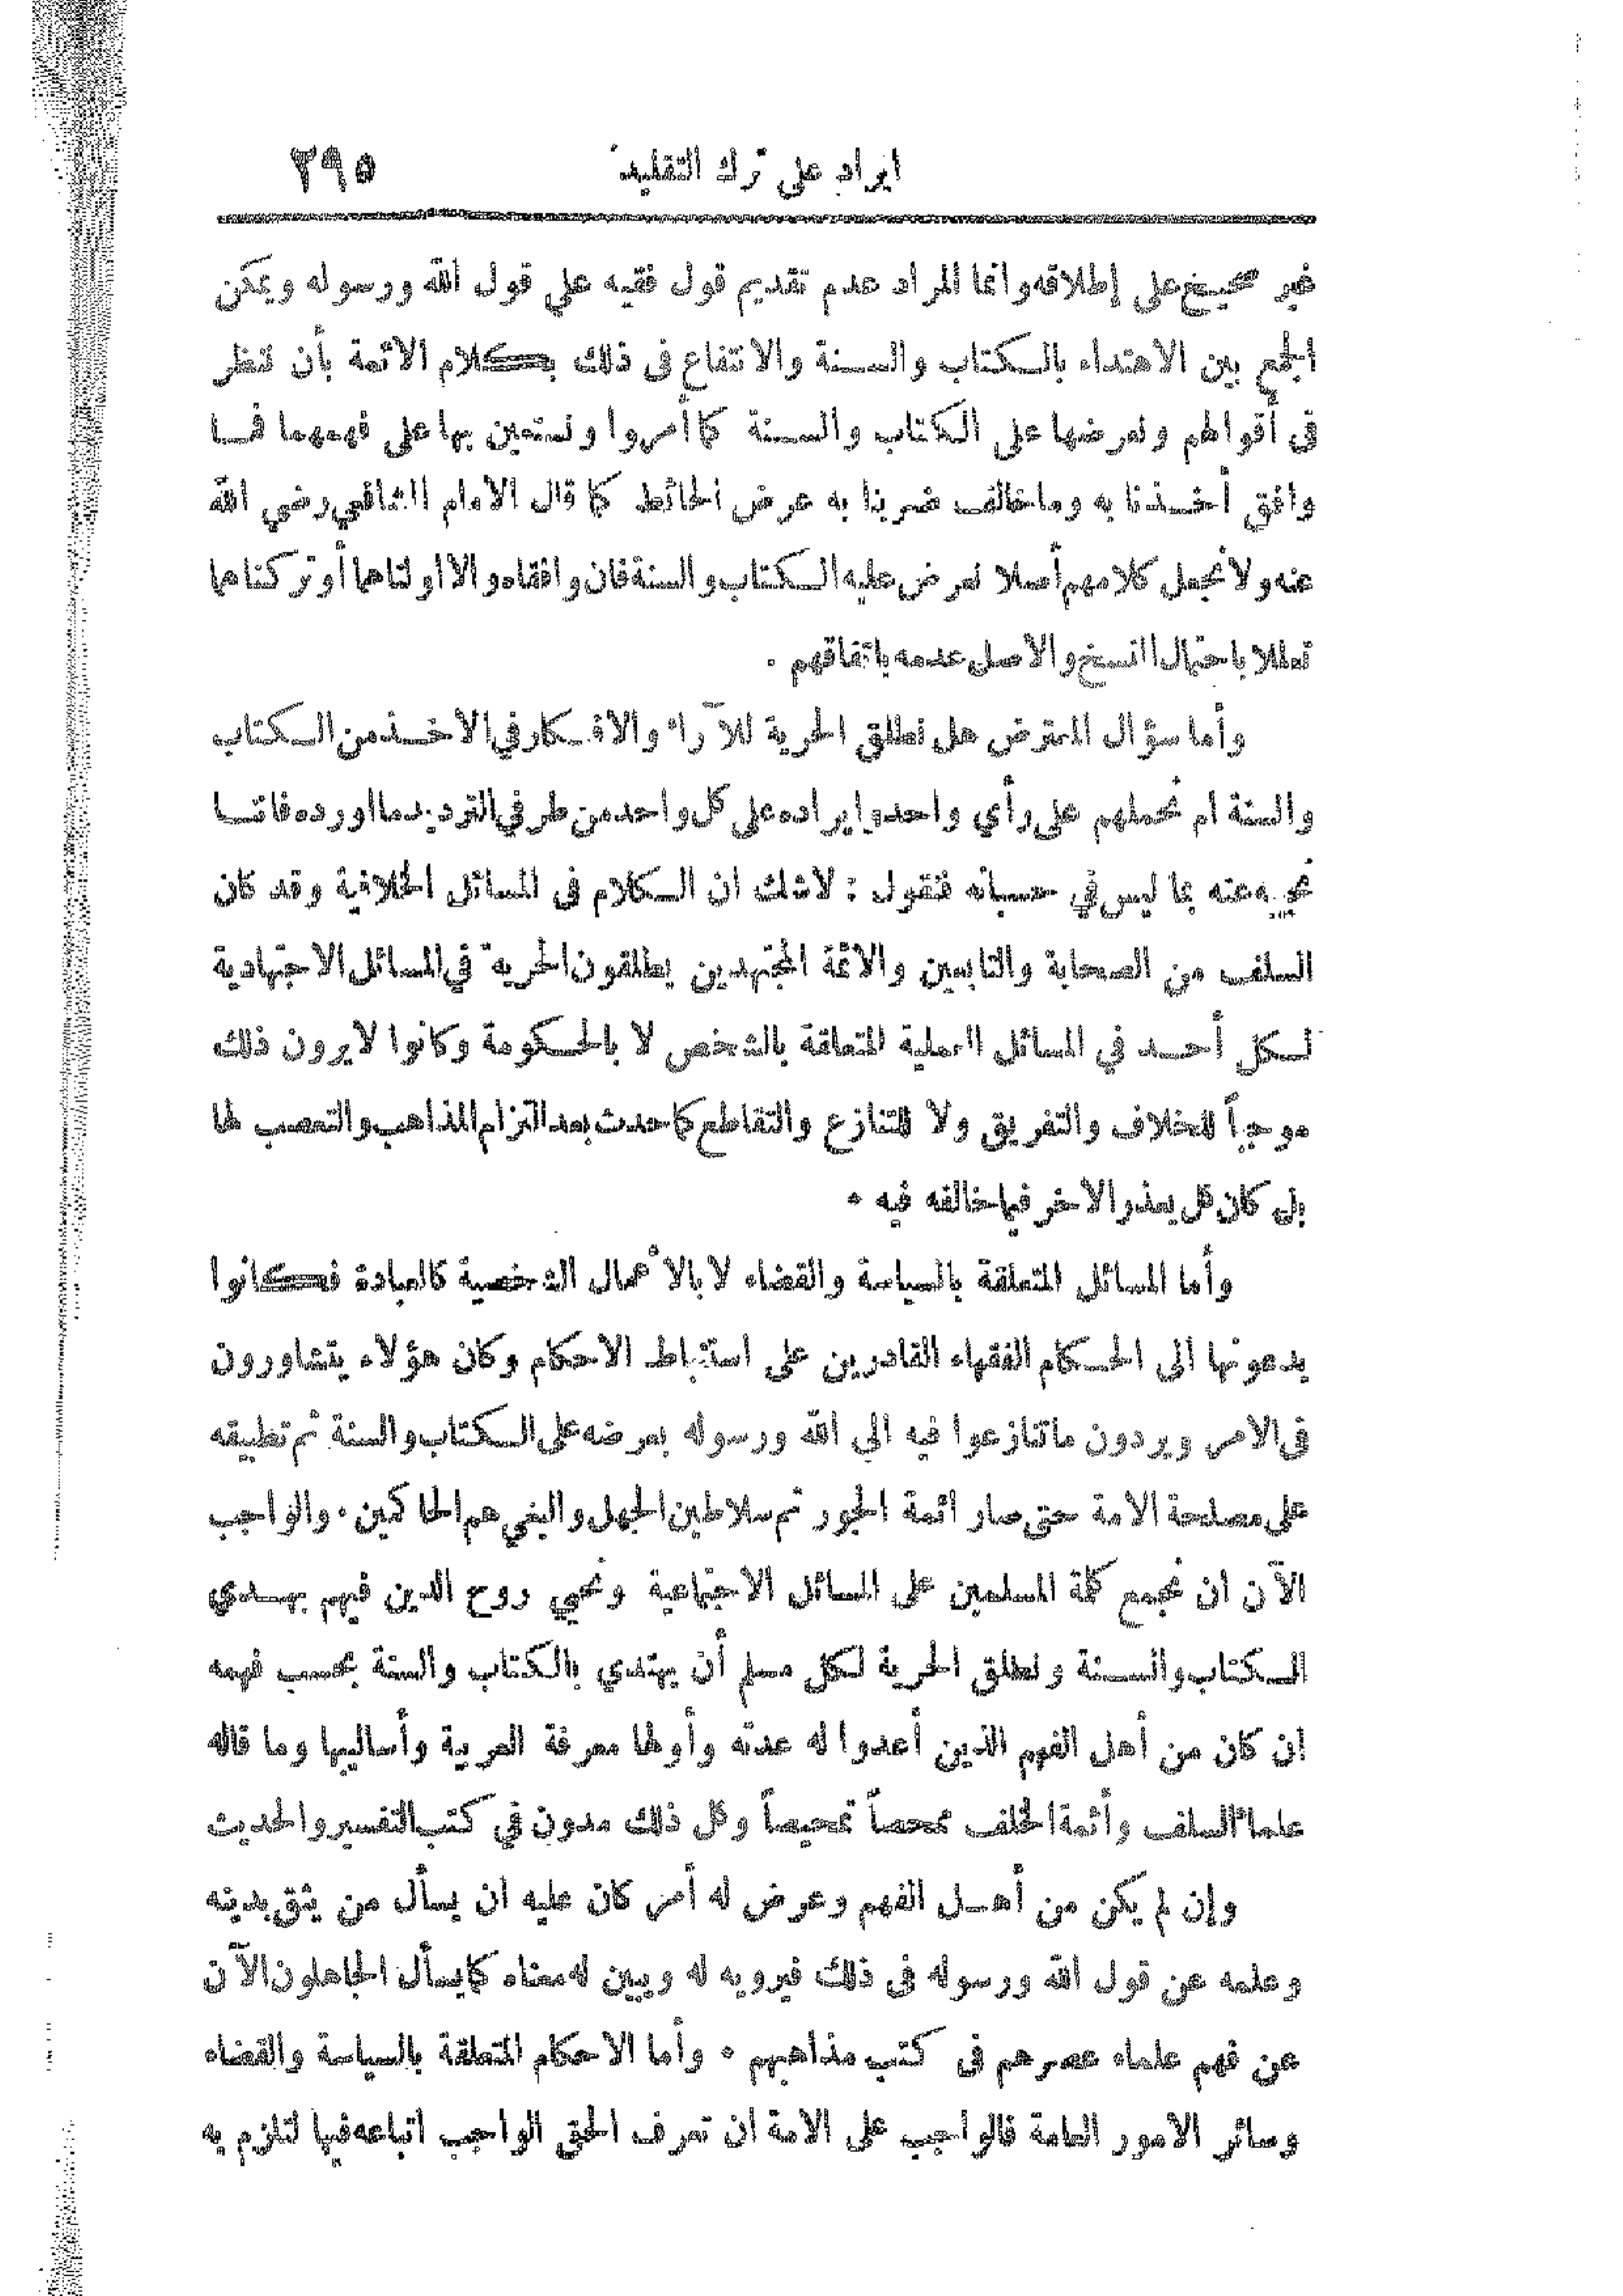 ايراد على ترك التقليد ٢٩٥
غير صحيح على إطلاقه وانما المراد عدم تقديم قول فقيه على قول الله ورسوله ويمكن
الجمع بين الاهتداء بالكتاب والسنة والانتفاع فى ذلك بكلام الائمة بأن ننظر
فى أقوالهم ونعرضها على الكتاب والسنة كما أمروا ونستعين بها على فهمهما فما
وافق أخذنا به وما خالف ضربنا به عرض الحائط كما قال الامام الشافعي رضي الله
عنه ولا نجعل كلامهم أصلا نعرض عليه الكتاب والسنة فان وافقاه والا اولناهما أو تركناهما
تعللا باحتمال النسخ والاصل عدمه باتفاقهم .
وأما سؤال المعترض هل نطلق الحرية للآراء والافكار في الاخذ من الكتاب
والسنة ام نحملهم على رأي واحد وايراده على كل واحد من طرفي الترديد ما اورده فاننا
نجيبه عنه بما ليس في حسبانه فنقول : لاشك ان الكلام فى المسائل الخلافية وقد كان
السلف من الصحابة والتابعين والائمة المجتهدين يطلقون الحرية في المسائل الاجتهادية
لكل أحد في المسائل العملية المتعلقة بالشخص لا بالحكومة وكانوا لا يرون ذلك
موجباً للخلاف والتفريق ولا للتنازع والتقاطع كما حدث بعد التزام المذاهب والتعصب لها
بل كان كل يعذر الاخر فيما خالفه فيه .
وأما المسائل المتعلقة بالسياسة والقضاء لا بالاعمال الشخصية كالعبادة فكانوا
يدعونها الى الحكام الفقهاء القادرين على استنباط الاحكام وكان هؤلاء يتشاورون
فى الامر ويردون ما تنازعوا فيه الى الله ورسوله بعرضه على الكتاب والسنة ثم تطبيقه
على مصلحة الامة حتى صار ائمة الجور ثم سلاطين الجهل والبغي هم الحاكمين . والواجب
الآن ان نجمع كلمة المسلمين على المسائل الاجتماعية ونحيي روح الدين فيهم بهدي
الكتاب والسنة ونطلق الحرية لكل مسلم أن يهتدي بالكتاب والسنة بحسب فهمه
ان كان من أهل الفهم الذين أعدوا له عدته وأولها معرفة العربية وأساليبها وما قاله
علماء السلف وأئمة الخلف ممحصاً تمحيصاً وكل ذلك مدون في كتب التفسير والحديث
وإن لم يكن من أهل الفهم وعرض له أمر كان عليه ان يسأل من يثق بدينه
وعلمه عن قول الله ورسوله فى ذلك فيرويه له ويبين له معناه كما يسأل الجاهلون الآن
عن فهم علماء عصرهم فى كتب مذاهبهم . وأما الاحكام المتعلقة بالسياسة والقضاء
وسائر الامور العامة فالواجب على الامة ان تعرف الحق الواجب اتباعه فيها لتلزم به